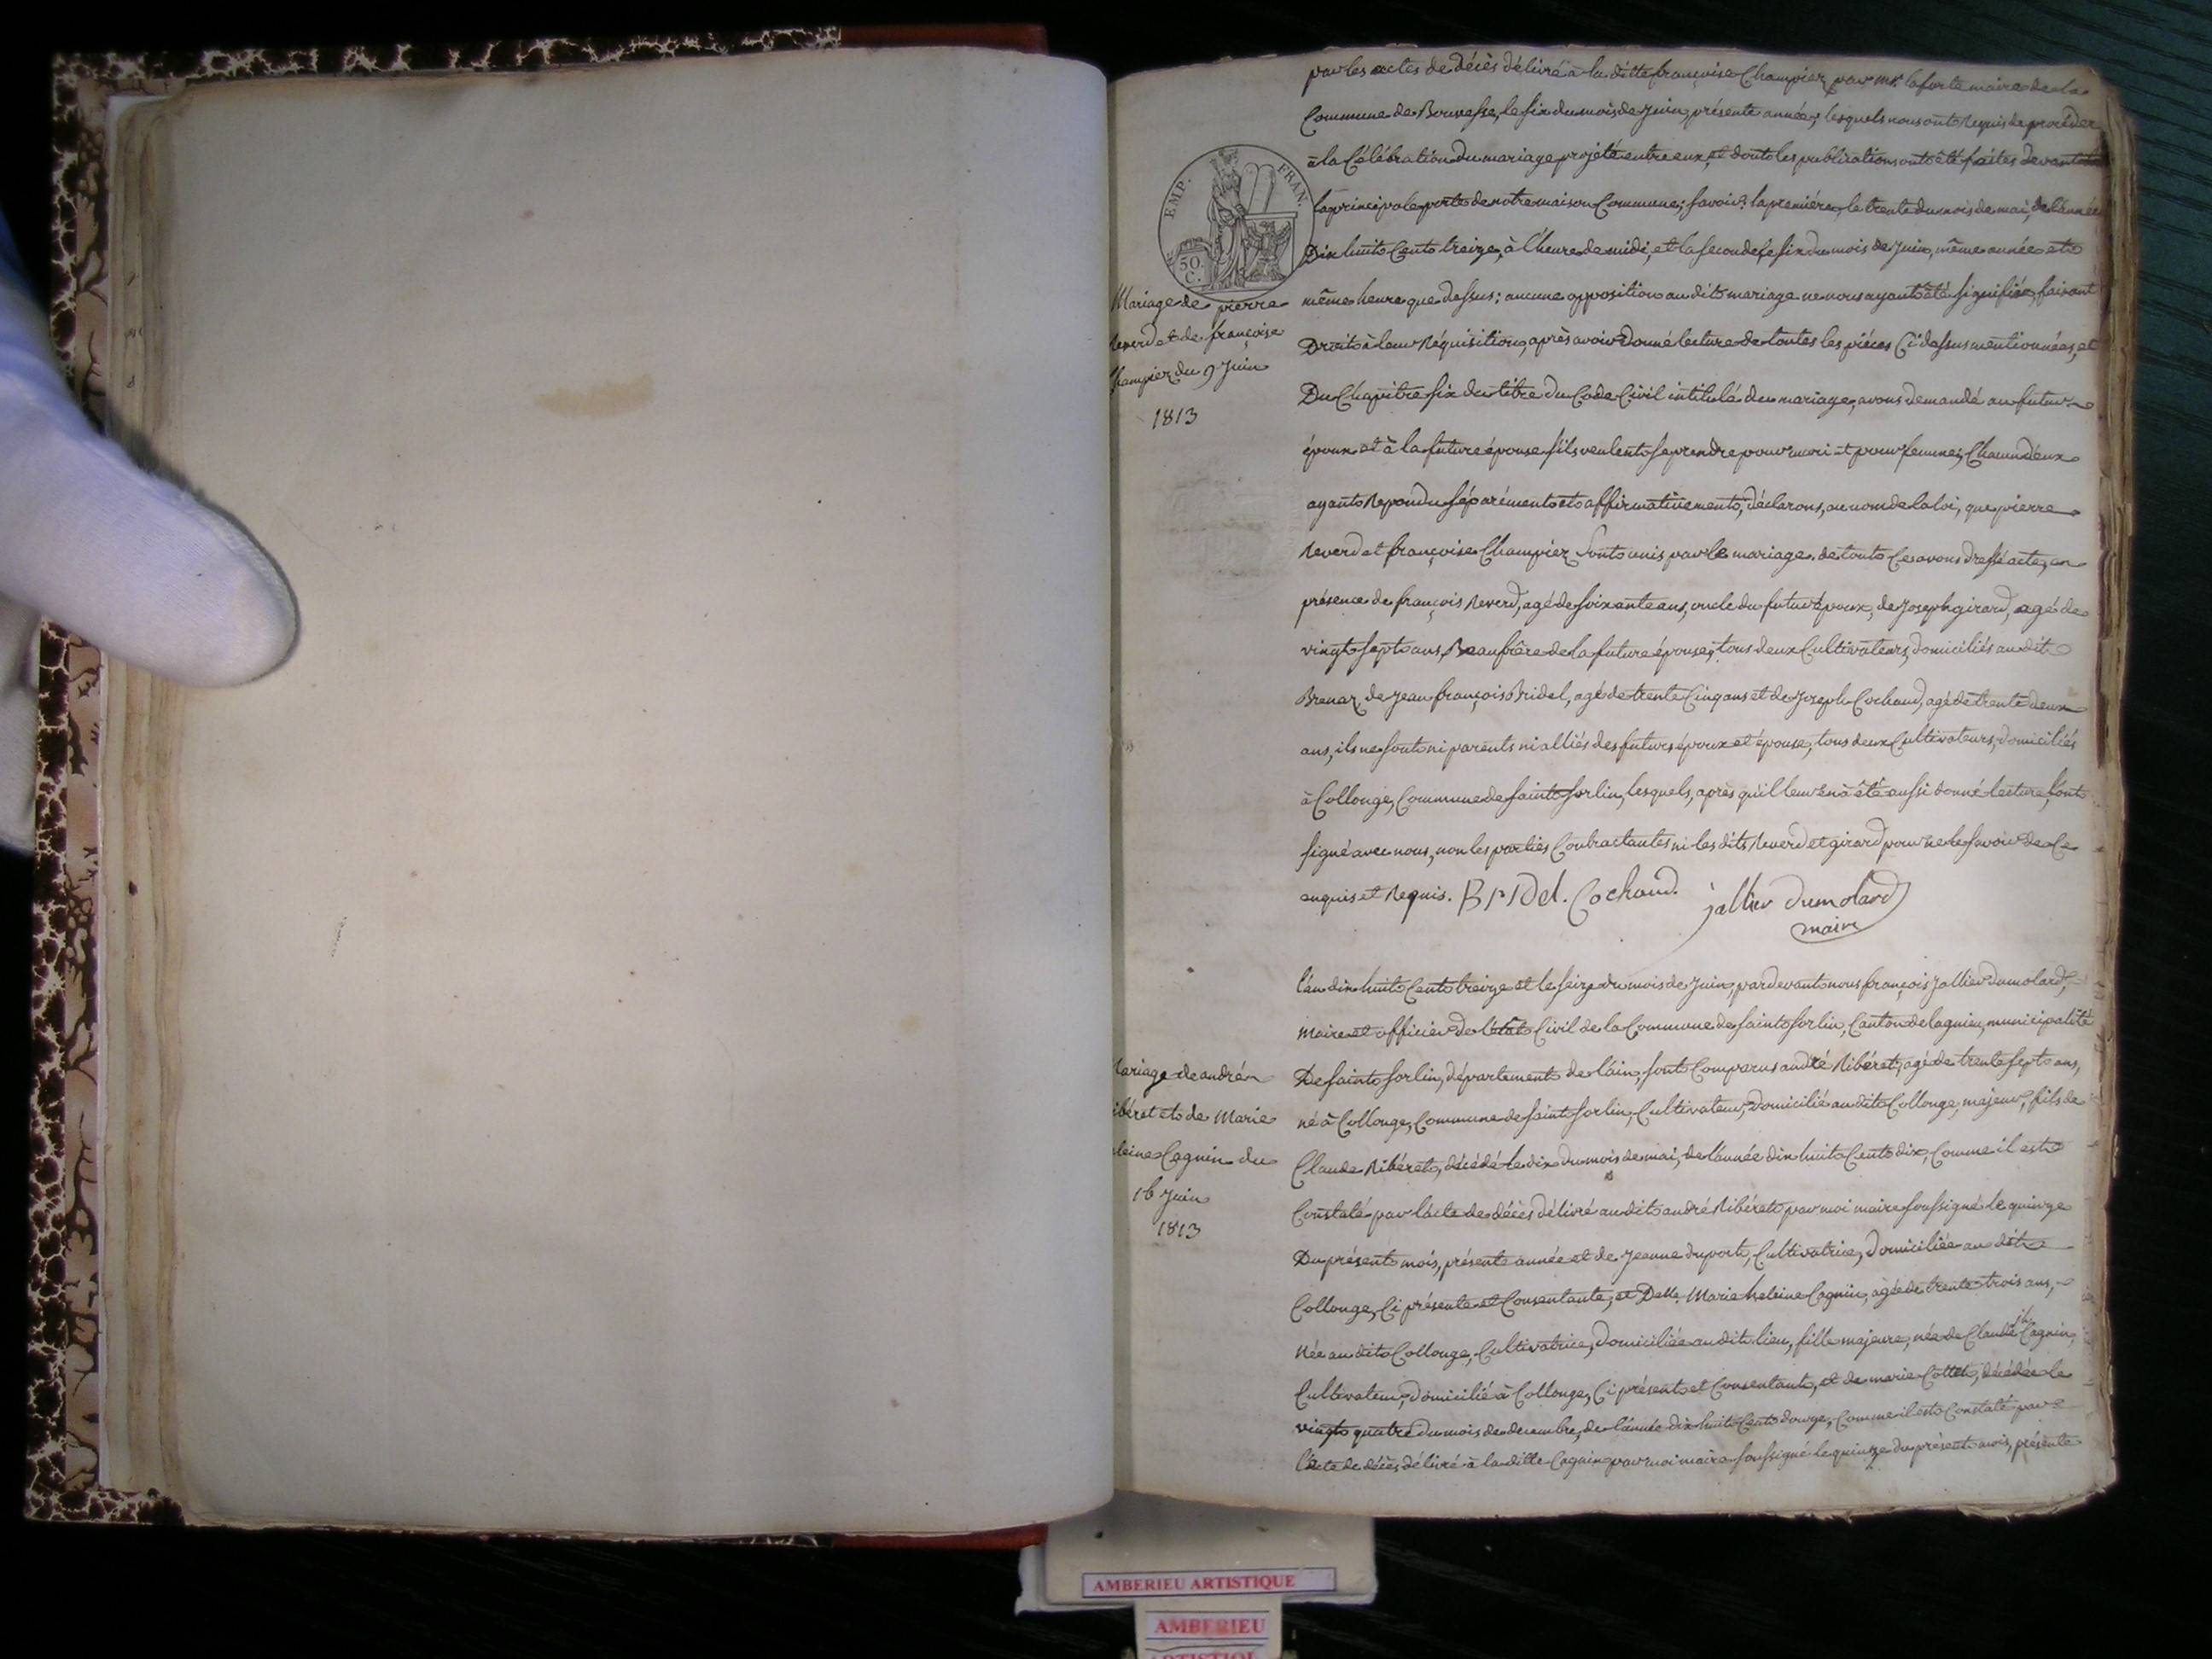 EMP. FRAN.
50. C.
par les actes de décès délivré à la ditte françoise Champier, par mr. laforte maire de la
Commune de Bouvesse, le six du mois de Juin, présente année; lesquels nous ont Requis de procéder
à la Célébration du mariage projeté entre eux, et dont les publications ont été faites devant
la principale porte de notre maison Commune; savoir: la première, le trente du mois de mai, de l'année
Dix huit Cent treize, à l'heure de midi, et la seconde, le six du mois de Juin, même année et
même heure que dessus: aucune opposition au dit mariage ne nous ayant été signifiée, faisant
Droit à leur Réquisition, après avoir donné lecture de toutes les pièces Ci dessus mentionnées, et
Du Chapitre six du titre du Code Civil intitulé du mariage, avons demandé au futur
époux et à la future épouse s'ils veulent se prendre pour mari et pour femme; Chacun d'eux
ayant Repondu séparément et affirmativement, déclarons, au nom de la loi, que pierre
Reverd et françoise Champier Sont unis par le mariage. de tout Ce avons dressé acte, en
présence de françois Reverd, agé de soixante ans, oncle du futur époux, de Joseph girard, agé de
vingt sept ans, Beaufrère de la future épouse, tous deux Cultivateurs, domiciliés au dit
Brenaz, de Jean françois Bridel, agé de trente Cinq ans et de Joseph Cochaud, agé de trente deux
ans, ils ne sont ni parents ni alliés des futurs époux et épouse, tous deux Cultivateurs, domiciliés
à Collonge, Commune de saint sorlin, lesquels, après qu'il leur en à été aussi donné lecture, l'ont
signé avec nous, non les parties Contractantes ni les dits Reverd et girard pour ne le savoir de Ce
enquis et Requis. BrIDel. Cochaud. jallier Dumolard
maire
Mariage de pierre
Reverd et de françoise
Champier, du 9 Juin
1813
l'an dix huit Cent treize et le seize du mois de Juin, pardevant nous françois Jallier Dumolard,
Maire et officier de l'état Civil de la Commune de saint sorlin, Canton de lagnieu, municipalité
De saint sorlin, département de l'ain, sont Comparus andré Ribéret, agé de trente sept ans,
né à Collonge, Commune de saint sorlin, Cultivateur, Domicilié au dit Collonge, majeur, fils de
Claude Ribéret, décédé le dix du mois de mai, de l'année dix huit Cent dix, Comme il est
Constaté par l'acte de décès délivré au dit andré Ribéret par moi maire soussigné le quinze
Du présent mois, présente année et de Jeanne duport, Cultivatrice, Domiciliée au dit
Collonge, Ci présente et Consentante, et Delle. Marie heleine Cagnin, agée de trente trois ans,
Née au dit Collonge, Cultivatrice, domiciliée au dit lieu, fille majeure, née de Claude Cagnin,
Cultivateur, Domicilié à Collonge, Ci présent et Consentant, et de marie Cottet, décédée le
vingt quatre du mois de decembre, de l'année dix huit Cent douze, Comme il est Constaté par
l'acte de décès délivré à la ditte Cagnin par moi maire soussigné le quinze du présent mois, présente
ariage de andré
ibéret et de Marie
leine Cagnin du
16 Juin
1813
AMBERIEU ARTISTIQUE
AMBERIEU
ARTISTIQUE